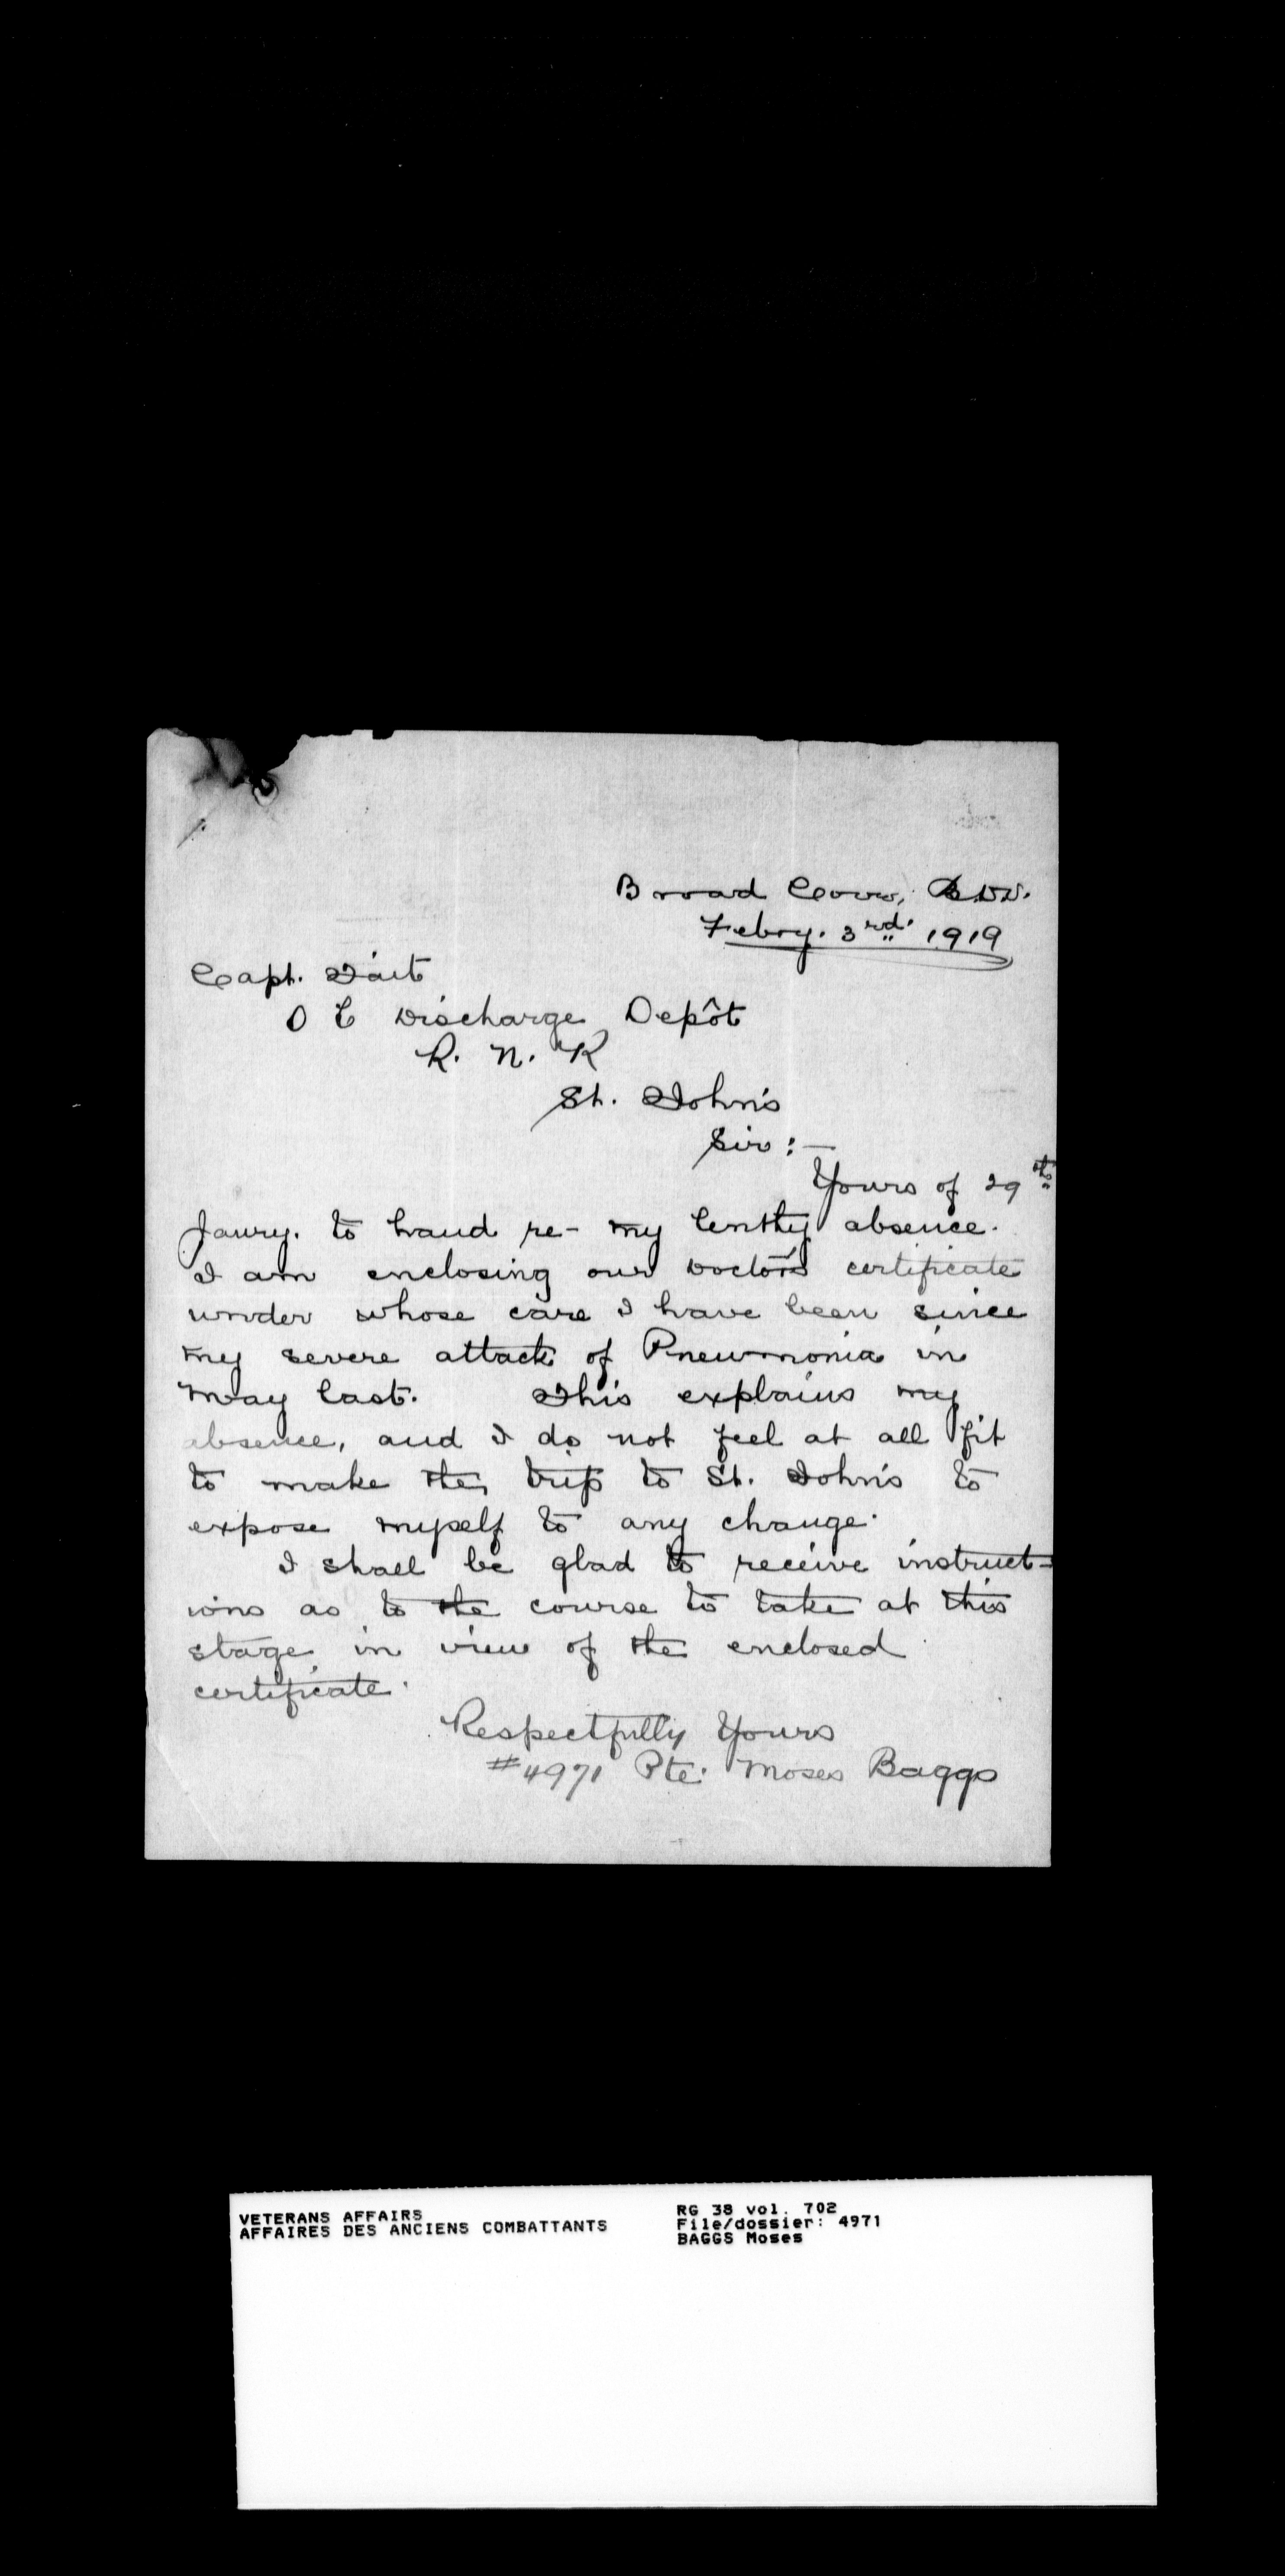 Broad Cove, B.D.V.
Febry. 3rd. 1919
Capt. Tait
O C Discharge Depôt
R. N. R
St. John's
Sir:—
Yours of 29th
Janry. to hand re- my lenthy absence.
I am enclosing our Doctor's certificate
under whose care I have been since
my severe attack of Pneumonia in
May last. This explains my
absence, and I do not feel at all fit
to make the trip to St. John's to
expose myself to any change.
I shall be glad to receive instruct-
ions as to the course to take at this
stage in view of the enclosed
certificate.
Respectfully Yours
#4971 Pte. Moses Baggs
VETERANS AFFAIRS
AFFAIRES DES ANCIENS COMBATTANTS
RG 38 vol. 702
File/dossier: 4971
BAGGS Moses